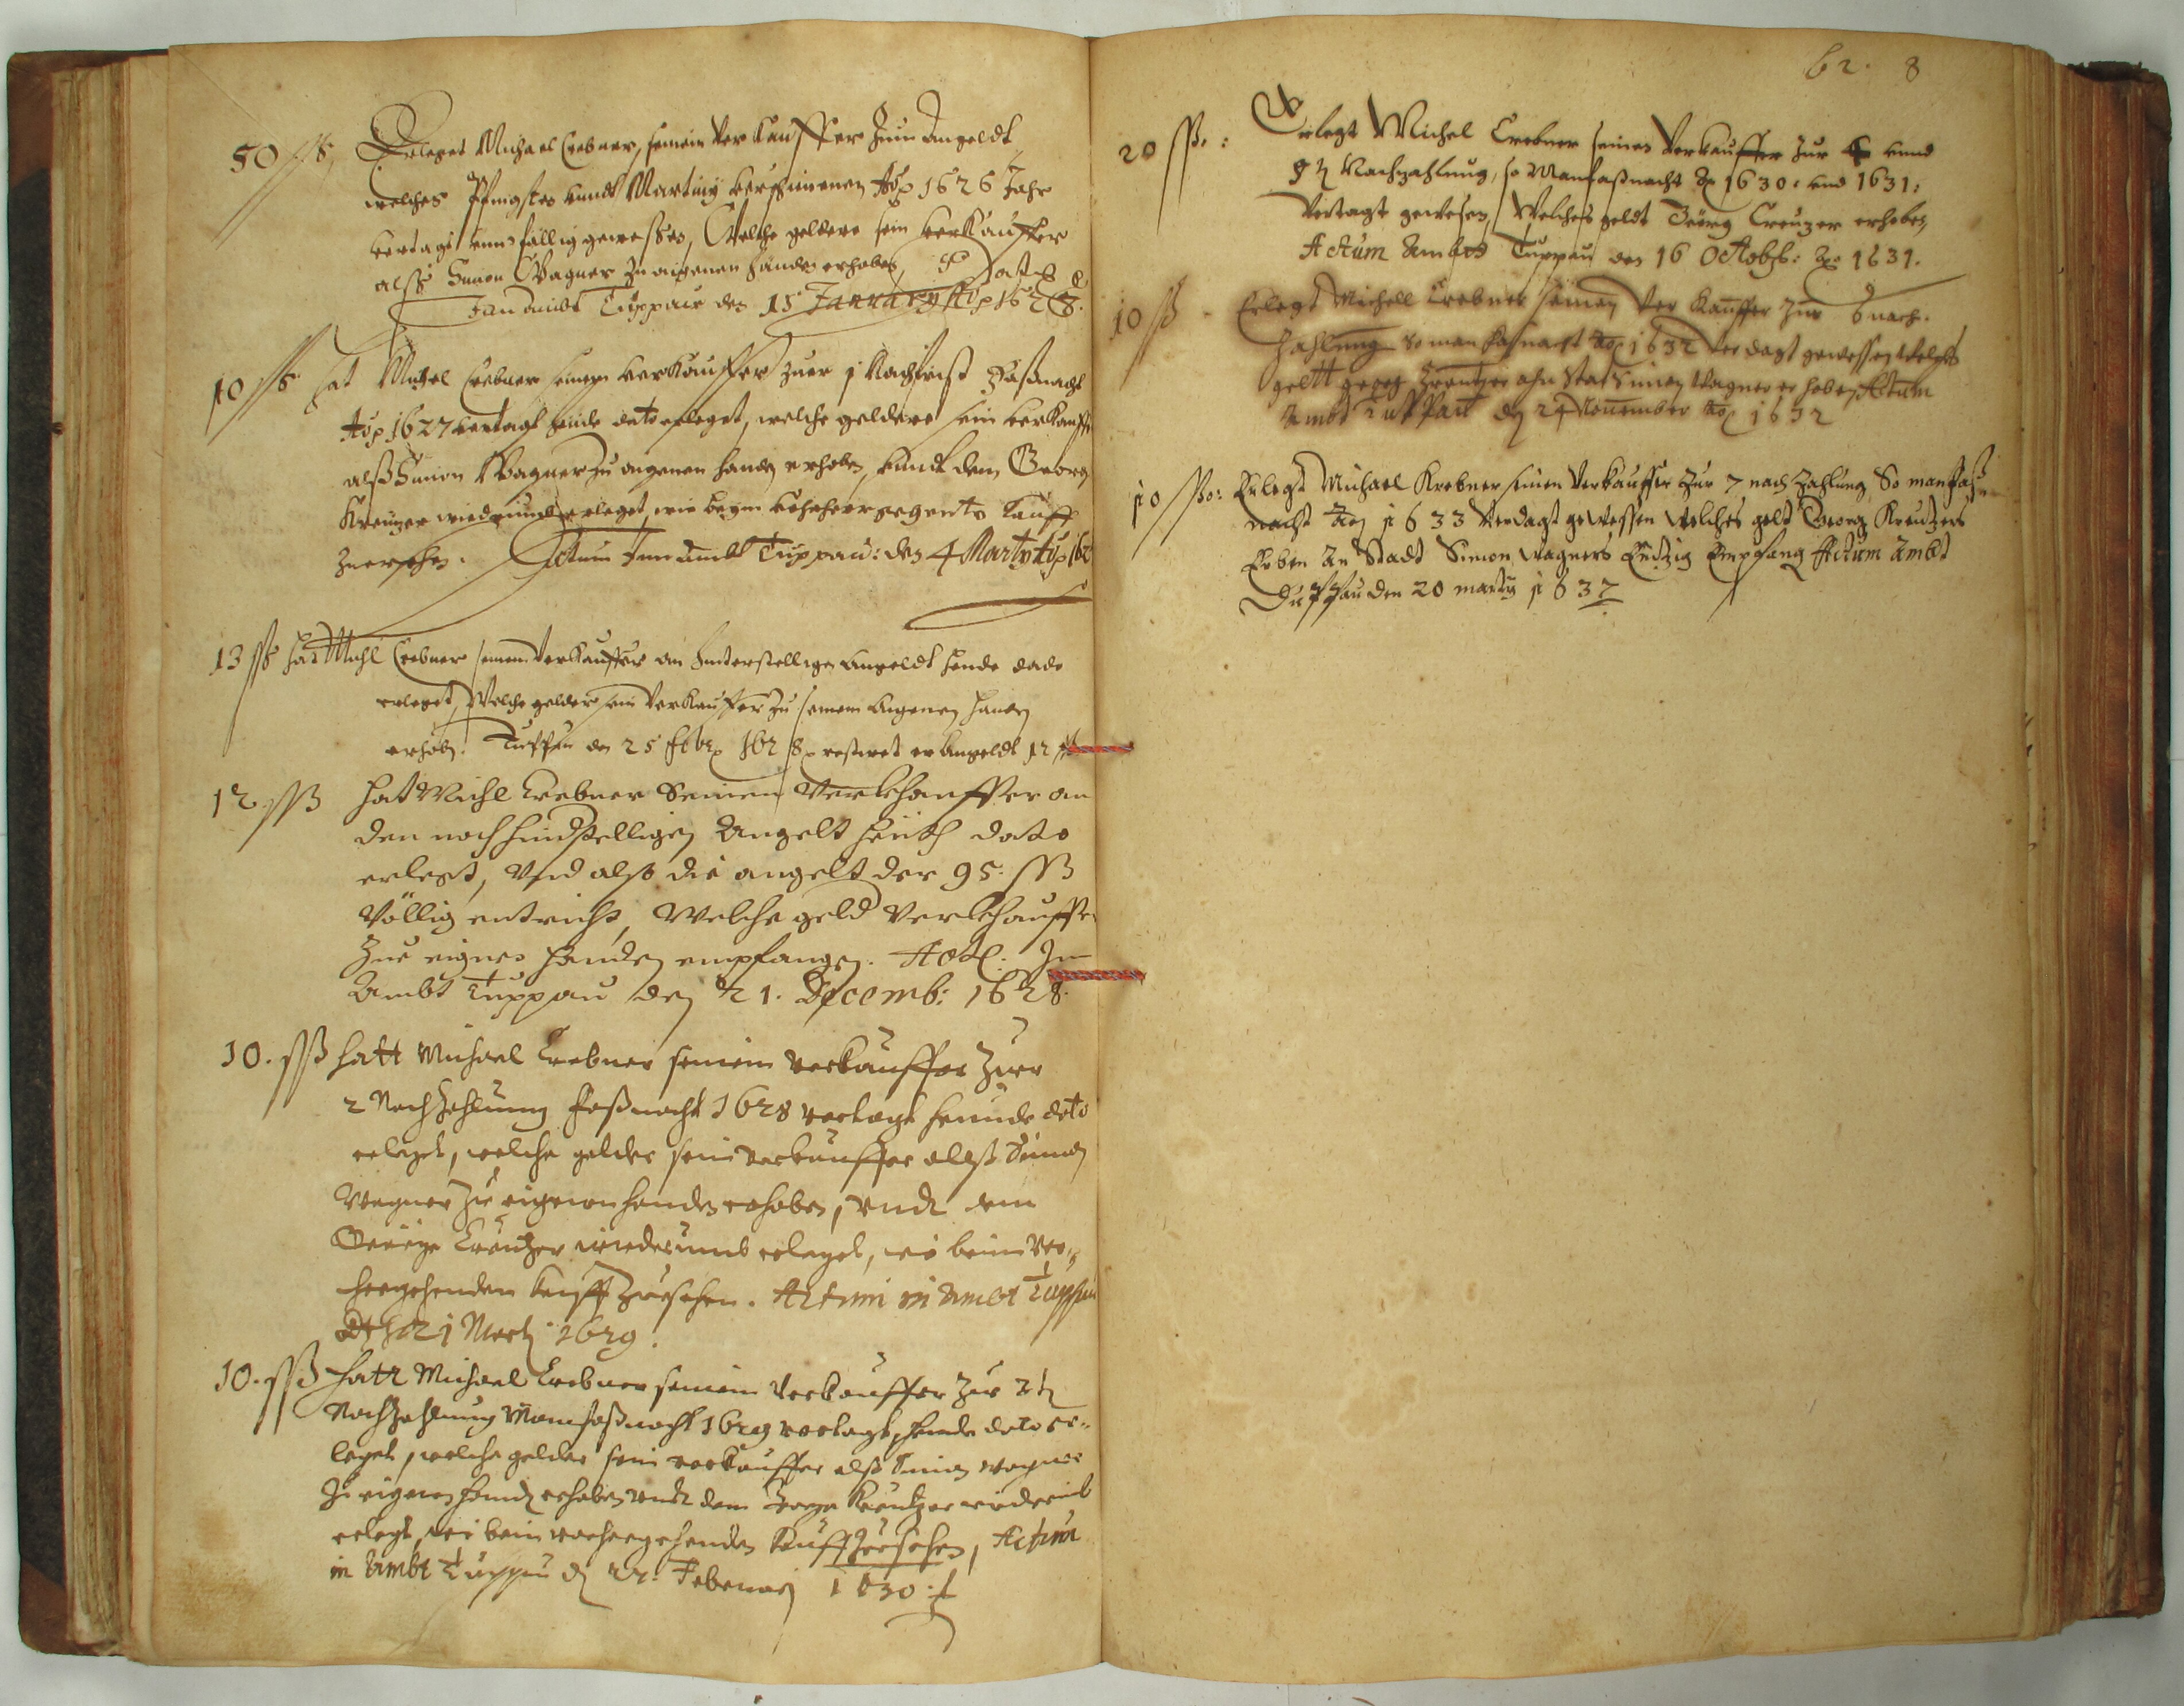 50 ßß Erleget Michael Crebner, seinem Verkauffer zum Angeldt,
welches Pfingsten unndt Martiny verschienenen Aõ 1626 Jahr
vertagt unnd fällig gewessen, Welche geldere sein verkauffer
alß Simon Wagner zu aigenen handen erhoben,
Im ambt Tuppau den 15 January Aõ 1628.
10 ßß hat Michel Crebner seinem verkauffer zuer 1 Nachfrist Faßnacht
Aõ 1627 vertagt heude dato erleget, welche geldere sein verkauffer
alß Simon Wagner zu aigenen handen erhoben, unndt dem Georg
Kreuzer wiedrumb erleget, wie beym kauff
zuersehen. Actum Im ambt Tuppau: den 4 Marty Aõ 162
13 ßß hat Michl Crebner seinem Verkauffer an hinterstelligen Angeldt heude dado
erleget, Welche gelder sein Verkauffer zu seinem aigenen handen
erhoben. Tuppau den 25 febr 1628 restiret er Angeldt 12 ßß
12 ßß hat Michl Crebner Seinem Verkhauffer an
den noch hindstelligen Angelt heuth dato
erlegt, Und also die angelt der 95 ßß
Völlig entricht, Welche geld Verkhauffer
Zue eignen handen empfangen. Act. Im
Ambt Tuppau den 21. Decemb: 1628.
10. ßß hatt Michael Crebner seinem verkauffer Zuer
2 Nachzahlung Faßnacht 1628 vertagt heunde dato
erleget, welche gelder sein verkauffer alß Simon
Wagner zu eigenen handen erhoben, undt dem
Geörge Creutzer wiederumb erleget, wie beim vor-
hergehenden kauff zuersehen. Actum in Ambt Tuppau
21 Marty 1629.
10. ßß hatt Michael Crebner seinem Verkauffer Zur 3ten
Nachzahlung Manfaßnacht 1629 vertagt, heunde dato er-
leget, welche gelder sein verkauffer alß Simon Wagner
zu eigenen handen erhoben undt dem Georg Kreutzer wiederumb
erlegt, wie beim vorhergehenden Kauff zuersehen, Actum
in Ambt Tuppau d Februarij 1630.
62. 8
20 ßß: Erlegt Michel Crebner seinen Verkauffer zur 4 unnd
5 ten Nachzahlung, so Manfaßnacht Aõ 1630. und 1631.
Vertagt gewesen, Welches geldt Geörg Creuzer erhoben,
Actum Ambts Tuppau den 16 Octobr: Aõ 1631.
10 ß Erlegt Michell Crebner seinen Ver Kauffer zur 6 nach-
zahlung so man fasnacht Aõ 1632 verdagt gewessen welches
geltt georg Zreutzer ahn stat Simen Wagner er hoben Actum
Ambt Tuppau den 24 November Aõ 1632
10 ßo: Erlegt Michael Krebner seinen Verkauffer Zur 7 nach Zahlung So manfaß
nacht Aõ 1633 Verdagt gewessen welches gelt Georg Kreutzers
Erben An Stadt Simon Wagners Empfang Actum Ambt
Duppau den 20 marty 1637